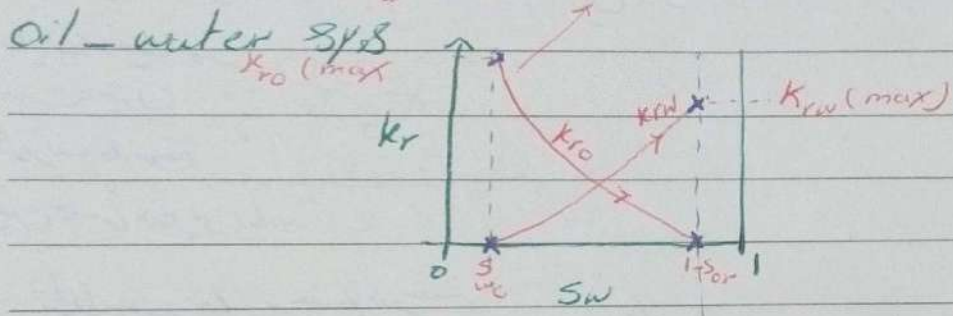 Oil-water sys
Kro (max
Kr
Kro
Krw
Krw (max)
0
Swc
1-Sor
1
Sw